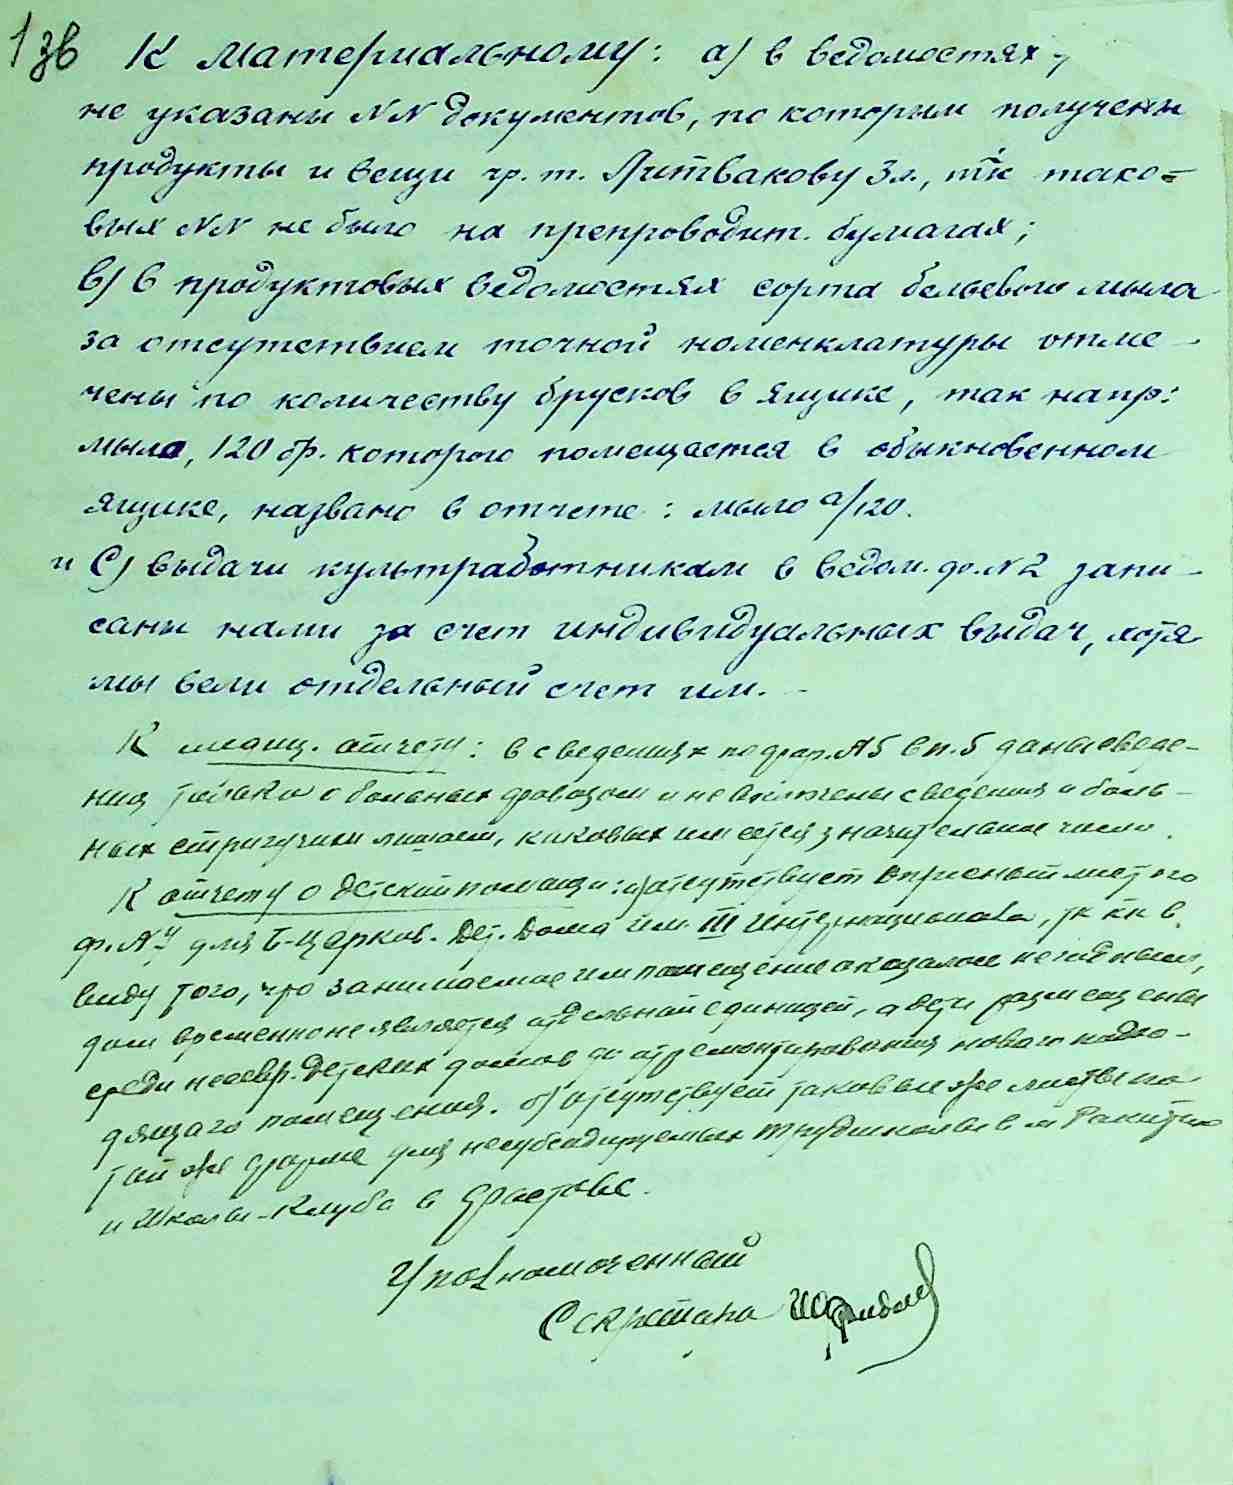 1 зв
К материальному: а) в ведомостях
не указаны NN документов, по которым получены
продукты и вещи гр. т. Литвакову Зл., т.к. тако=
вых NN не было на препроводит. бумагах;
в) в продуктовых ведомостях сорта бельевого мыла
за отсутствием точной номенклатуры отме-
чены по количеству брусков в ящике, так напр:
мыло, 120 бр. которого помещается в обыкновенном
ящике, названо в отчете: мыло а/120.
и С) выдачи культработникам в ведом. ф. N2 запи-
саны нами за счет индивидуальных выдач, хотя
мы вели отдельный счет им. -
К медиц. отчету: в сведениях по фор. А5 в п. 5 даны сведе-
ния только о больных фавозом и не включены сведения о боль-
ных стригущим лишаем, каковых имеется значительное число.
К отчету о детской помощи: а) отсутствует опросный лист по
ф. А4 для Б-Церков. Дет. Дома им. III Интернационала, т.к. в
виду того, что занимаемое им помещение оказалось негодным,
дом временно не является отдельной единицей, а дети размещены
среди неевр. детских домов до отремонтирования нового подхо-
дящаго помещения. б) отсутствует таковые же листы по
той же форме для несубсидируемых трудшколы в м. Ракитно
и Школы-Клуба в Фастове.
Уполномоченный
Секретарь